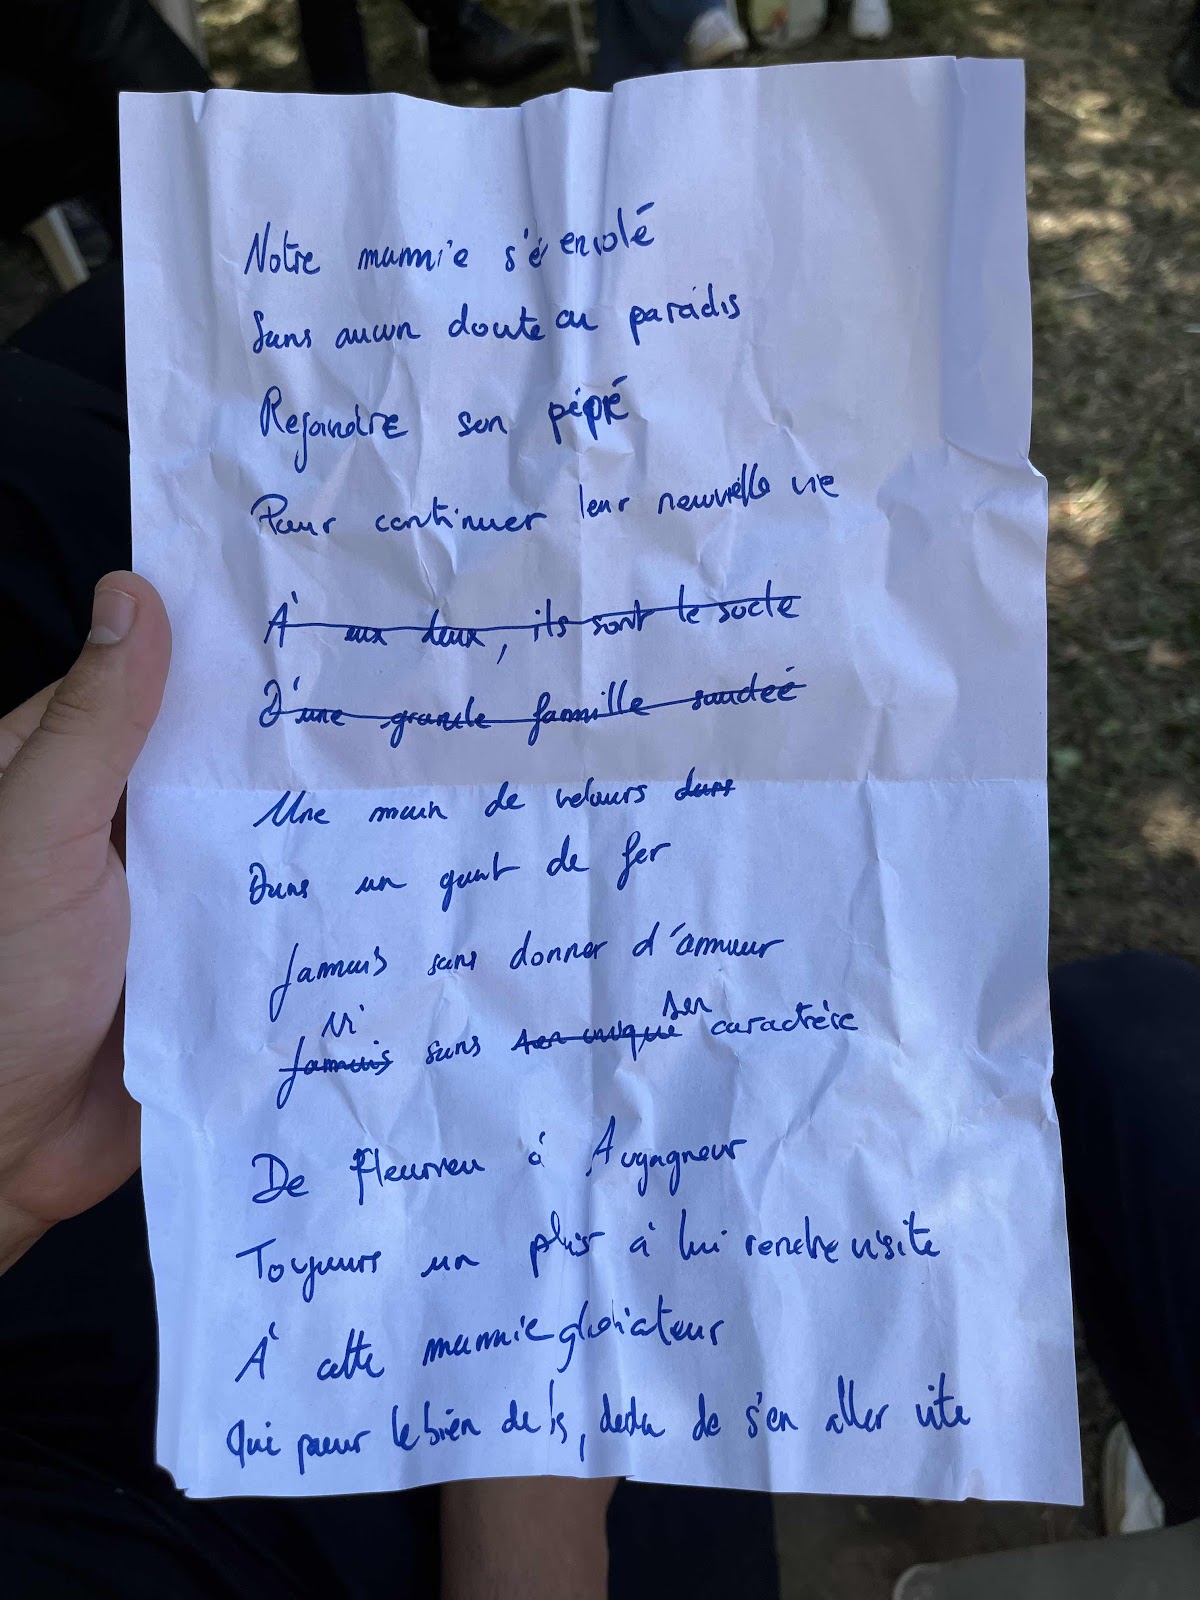 Notre mamie s'é envolé
Sans aucun doute au paradis
Rejoindre son pépé
Pour continuer leur nouvelle vie
À eux deux, ils sont le socle
D'une grande famille soudée
Une main de velours dans
Dans un gant de fer
Jamais sans donner d'amour
Ni son
Jamais sans son unique caractère
De Fleurieu à Augagneur
Toujours un plaisir à lui rendre visite
À cette mamie gladiateur
Qui pour le bien de ts, décida de s'en aller vite